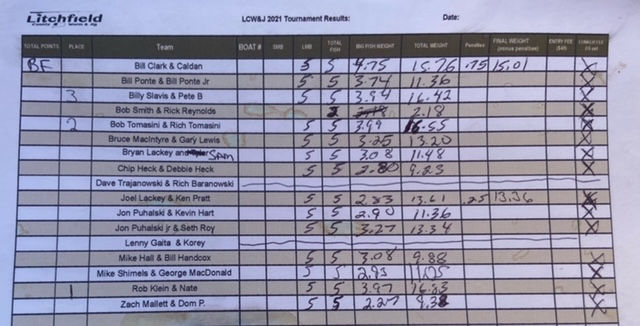 Litchfield LCW&J 2021 Tournament Results: Date:
TOTAL POINTS PLACE Team BOAT # SMB LMB TOTAL FISH BIG FISH WEIGHT TOTAL WEIGHT Penalties FINAL WEIGHT (minus penalties) ENTRY FEE
BF Bill Clark & Caldan 5 5 4.75 15.76 .75 15.01 X
Bill Ponte & Bill Ponte Jr 5 5 3.74 11.36 X
3 Billy Slavis & Pete B 5 5 3.94 16.42 X
Bob Smith & Rick Reynolds 2 2.18 2.18 X
2 Bob Tomasini & Rich Tomasini 5 5 3.99 16.55 X
Bruce MacIntyre & Gary Lewis 5 5 3.25 13.20 X
Bryan Lackey and Sam 5 5 3.08 11.48 X
Chip Heck & Debbie Heck 5 5 2.80 9.23 X
Dave Trajanowski & Rich Baranowski
Joel Lackey & Ken Pratt 5 5 2.83 13.61 .25 13.36 X
Jon Puhalski & Kevin Hart 5 5 2.90 11.36 X
Jon Puhalski jr & Seth Roy 5 5 3.27 13.34 X
Lenny Gaita & Korey
Mike Hall & Bill Handcox 5 5 3.08 9.88 X
Mike Shimels & George MacDonald 5 5 2.93 11.25 X
1 Rob Klein & Nate 5 5 3.97 16.83 X
Zach Mallett & Dom P. 5 5 2.27 9.38 X